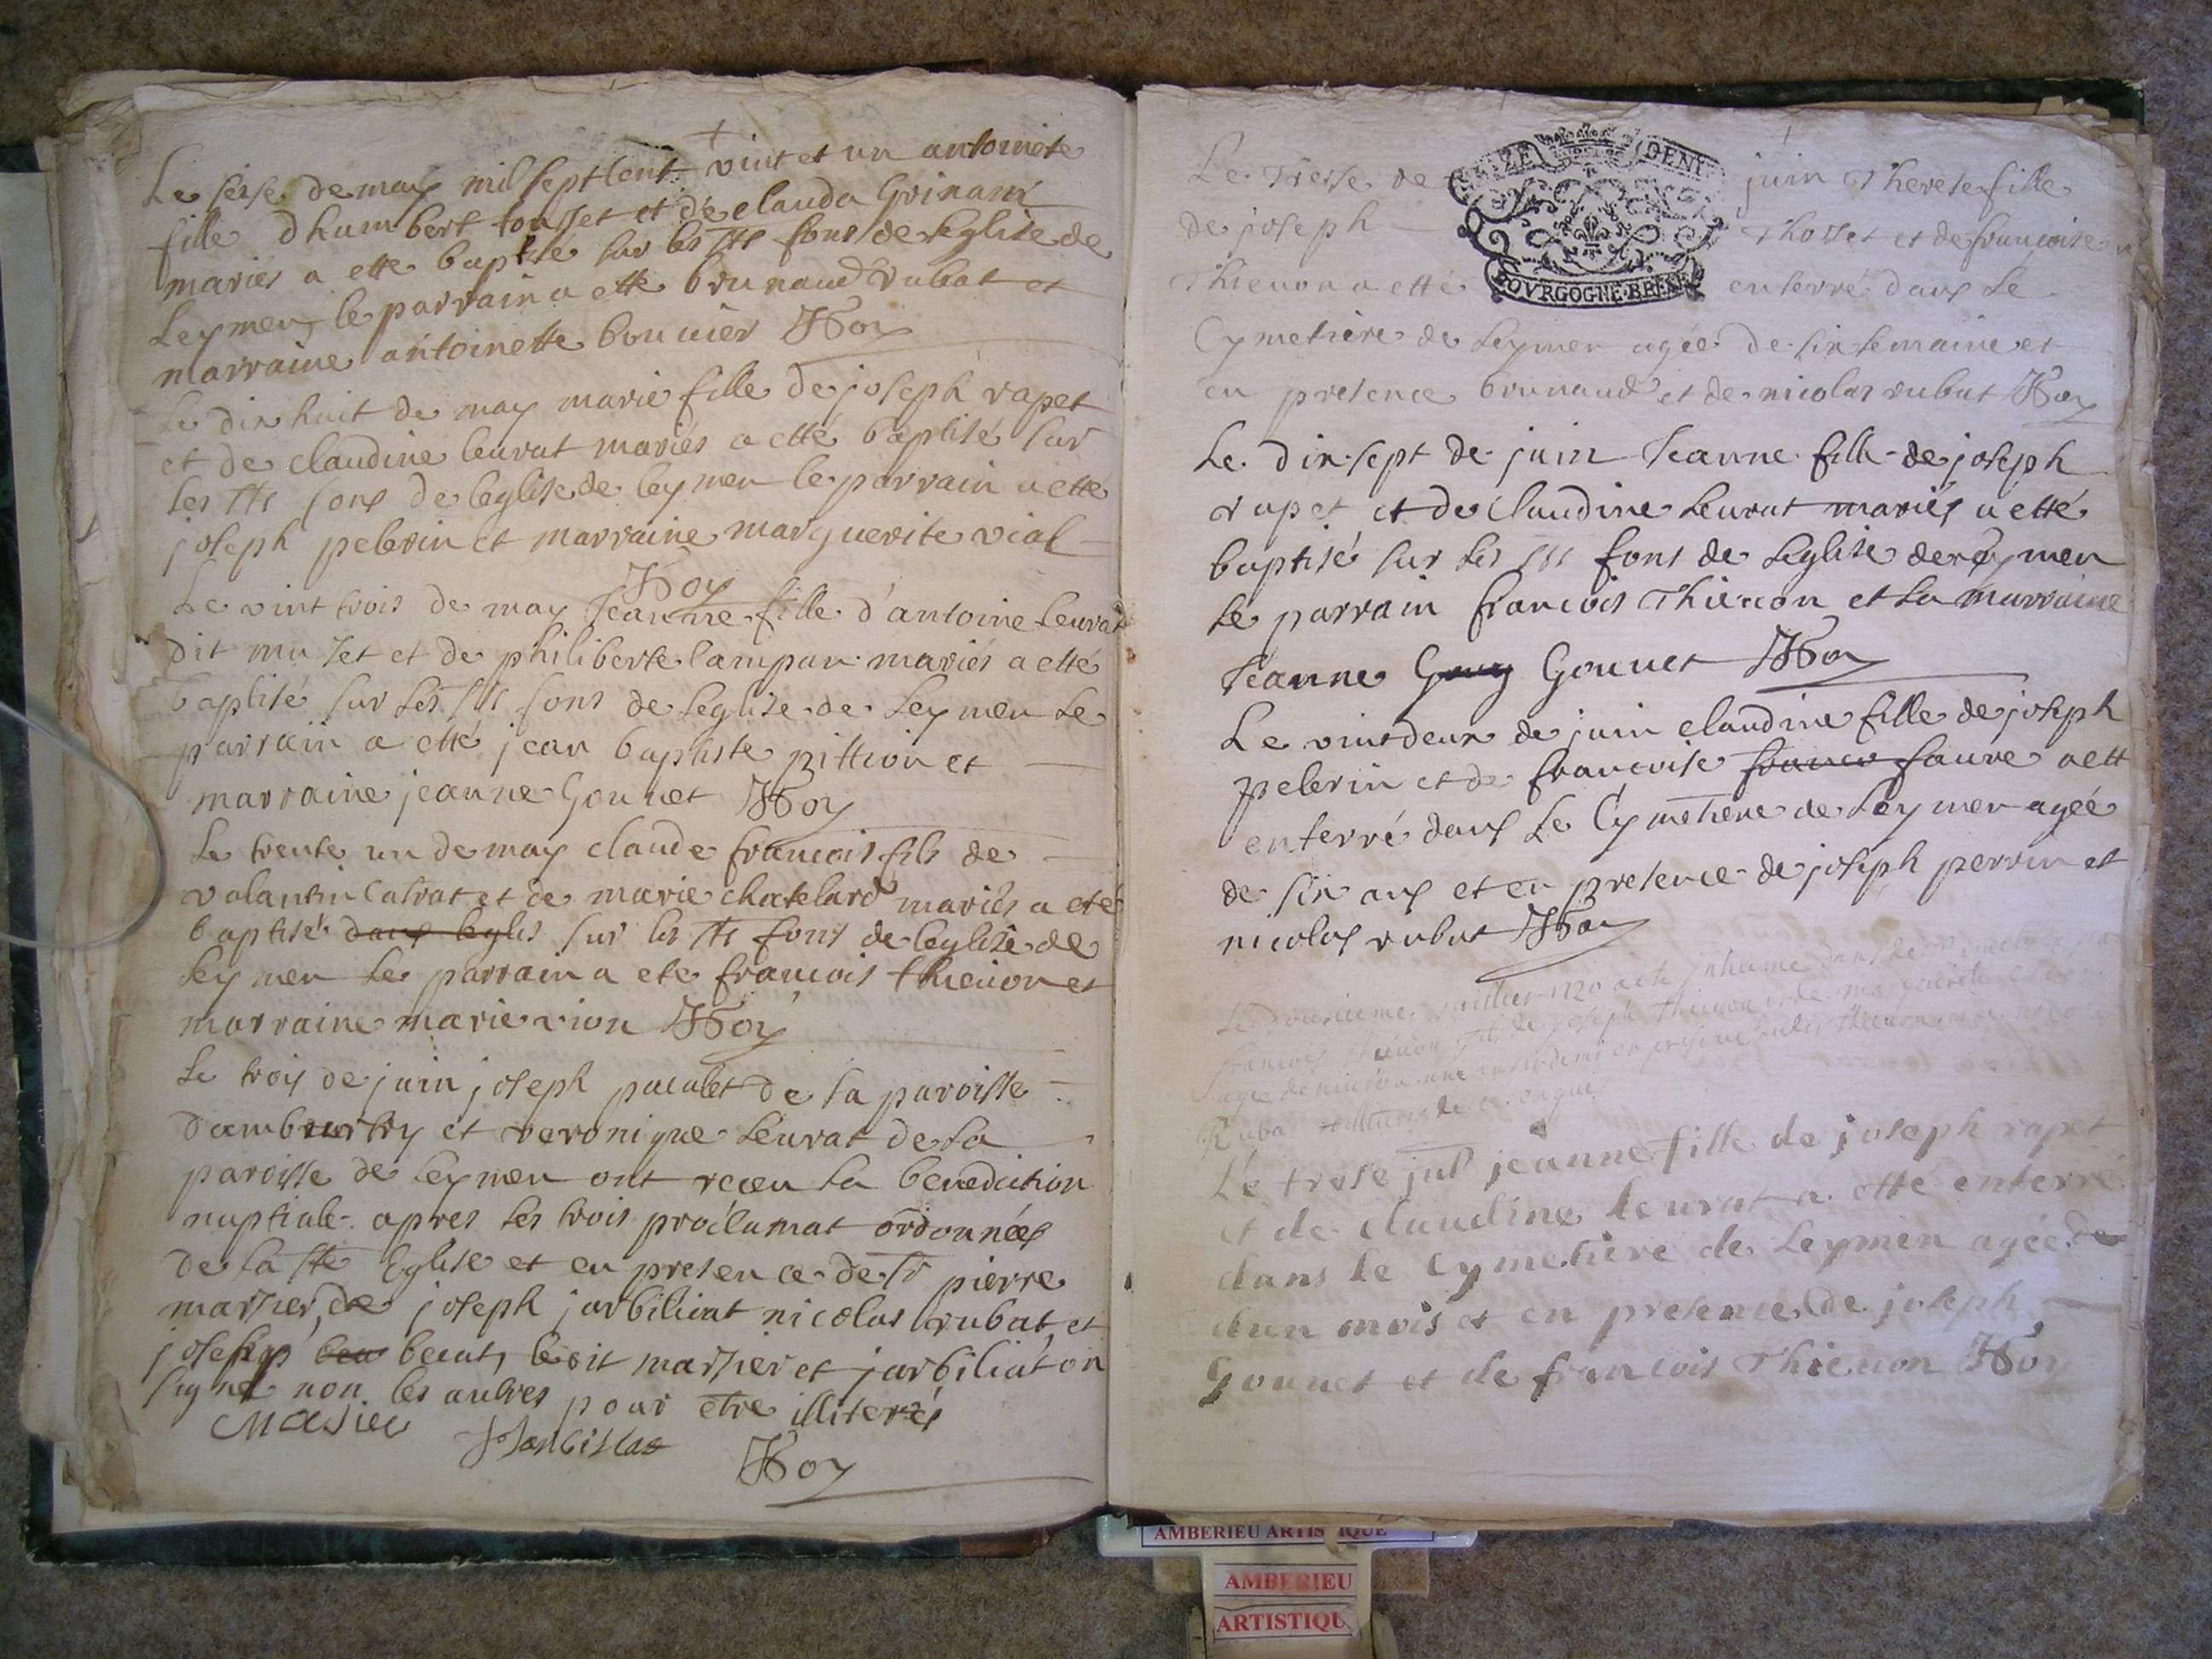 Le seise de may mil sept cent vint et un antoinete
fille d'humbert tousset et de clauda Grinam
mariés a ette baptise sur les sts fons de leglise de
Leymen, le parrain a ette brunaud rubat et
marraine antoinette bouuier Hoy
Le dix huit de may marie fille de joseph rapet
et de claudine leurat mariés a etté baptisé sur
les sts fons de leglise de leymen le parrain a etté
joseph pelerin et marraine marguerite vial
Hoy
Le vint trois de may Jeanne fille d'antoine leurat
dit muset et de philiberte lampan mariés a etté
baptisé sur les sts fons de leglise de Leymen Le
parrain a etté jean baptiste pittion et
marraine jeanne Gounet Hoy
Le trente un de may claude francois fils de
valantin Catrat et de marie chatelard mariés a eté
baptisé dans leglis sur les sts fons de leglise de
Leymen Le parrain a ete francois thienon et
marraine marie vion Hoy
Le trois de juin joseph pacalet de la paroisse
et veronique Leurat de La
paroisse de Leymen ont receu La benediction
nuptiale apres les trois proclamat ordonnées
de la ste Eglise et en presence de sr pierre
masier, de joseph jarbiliat nicolas rubat et
joseph beat, le dit masier et jarbiliat on
signé non les autres pour etre illiterés
Masier Harbillat
Hoy
Le Tresse de juin Therese fille
de joseph Thosset et de francoise
Thienon a etté enterré dans Le
Cymetiere de Leymen agée de six semaine et
en presence brunaud et de nicolas rubat Hoy
Le dix sept de juin Jeanne fille de joseph
rapet et de Claudine Leurat mariés a etté
baptisé sur Les sts fons de Leglise de Leymen
Le parrain francois Thienon et La marraine
Jeanne Gouy Gounet Hoy
Le vint deux de juin claudine fille de joseph
pelerin et de francoise france faure a ett
enterré dans Le Cymetiere de Leymen agée
de six ans et en presence de joseph perrin et
nicolas rubat Hoy
Le juillet 1720 a ete inhume dans le
francois thienon fils de joseph thienon et de
age denviron une
Rubat
Le trese jul jeanne fille de joseph rapet
et de claudine leurat a etté enterré
dans le Cymetiere de Leymen agée de
dun mois et en presence de joseph
Gounet et de francois Thienon Hoy
BOVRGOGNE·BRESSE
AMBERIEU ARTISTIQUE
AMBERIEU
ARTISTIQU